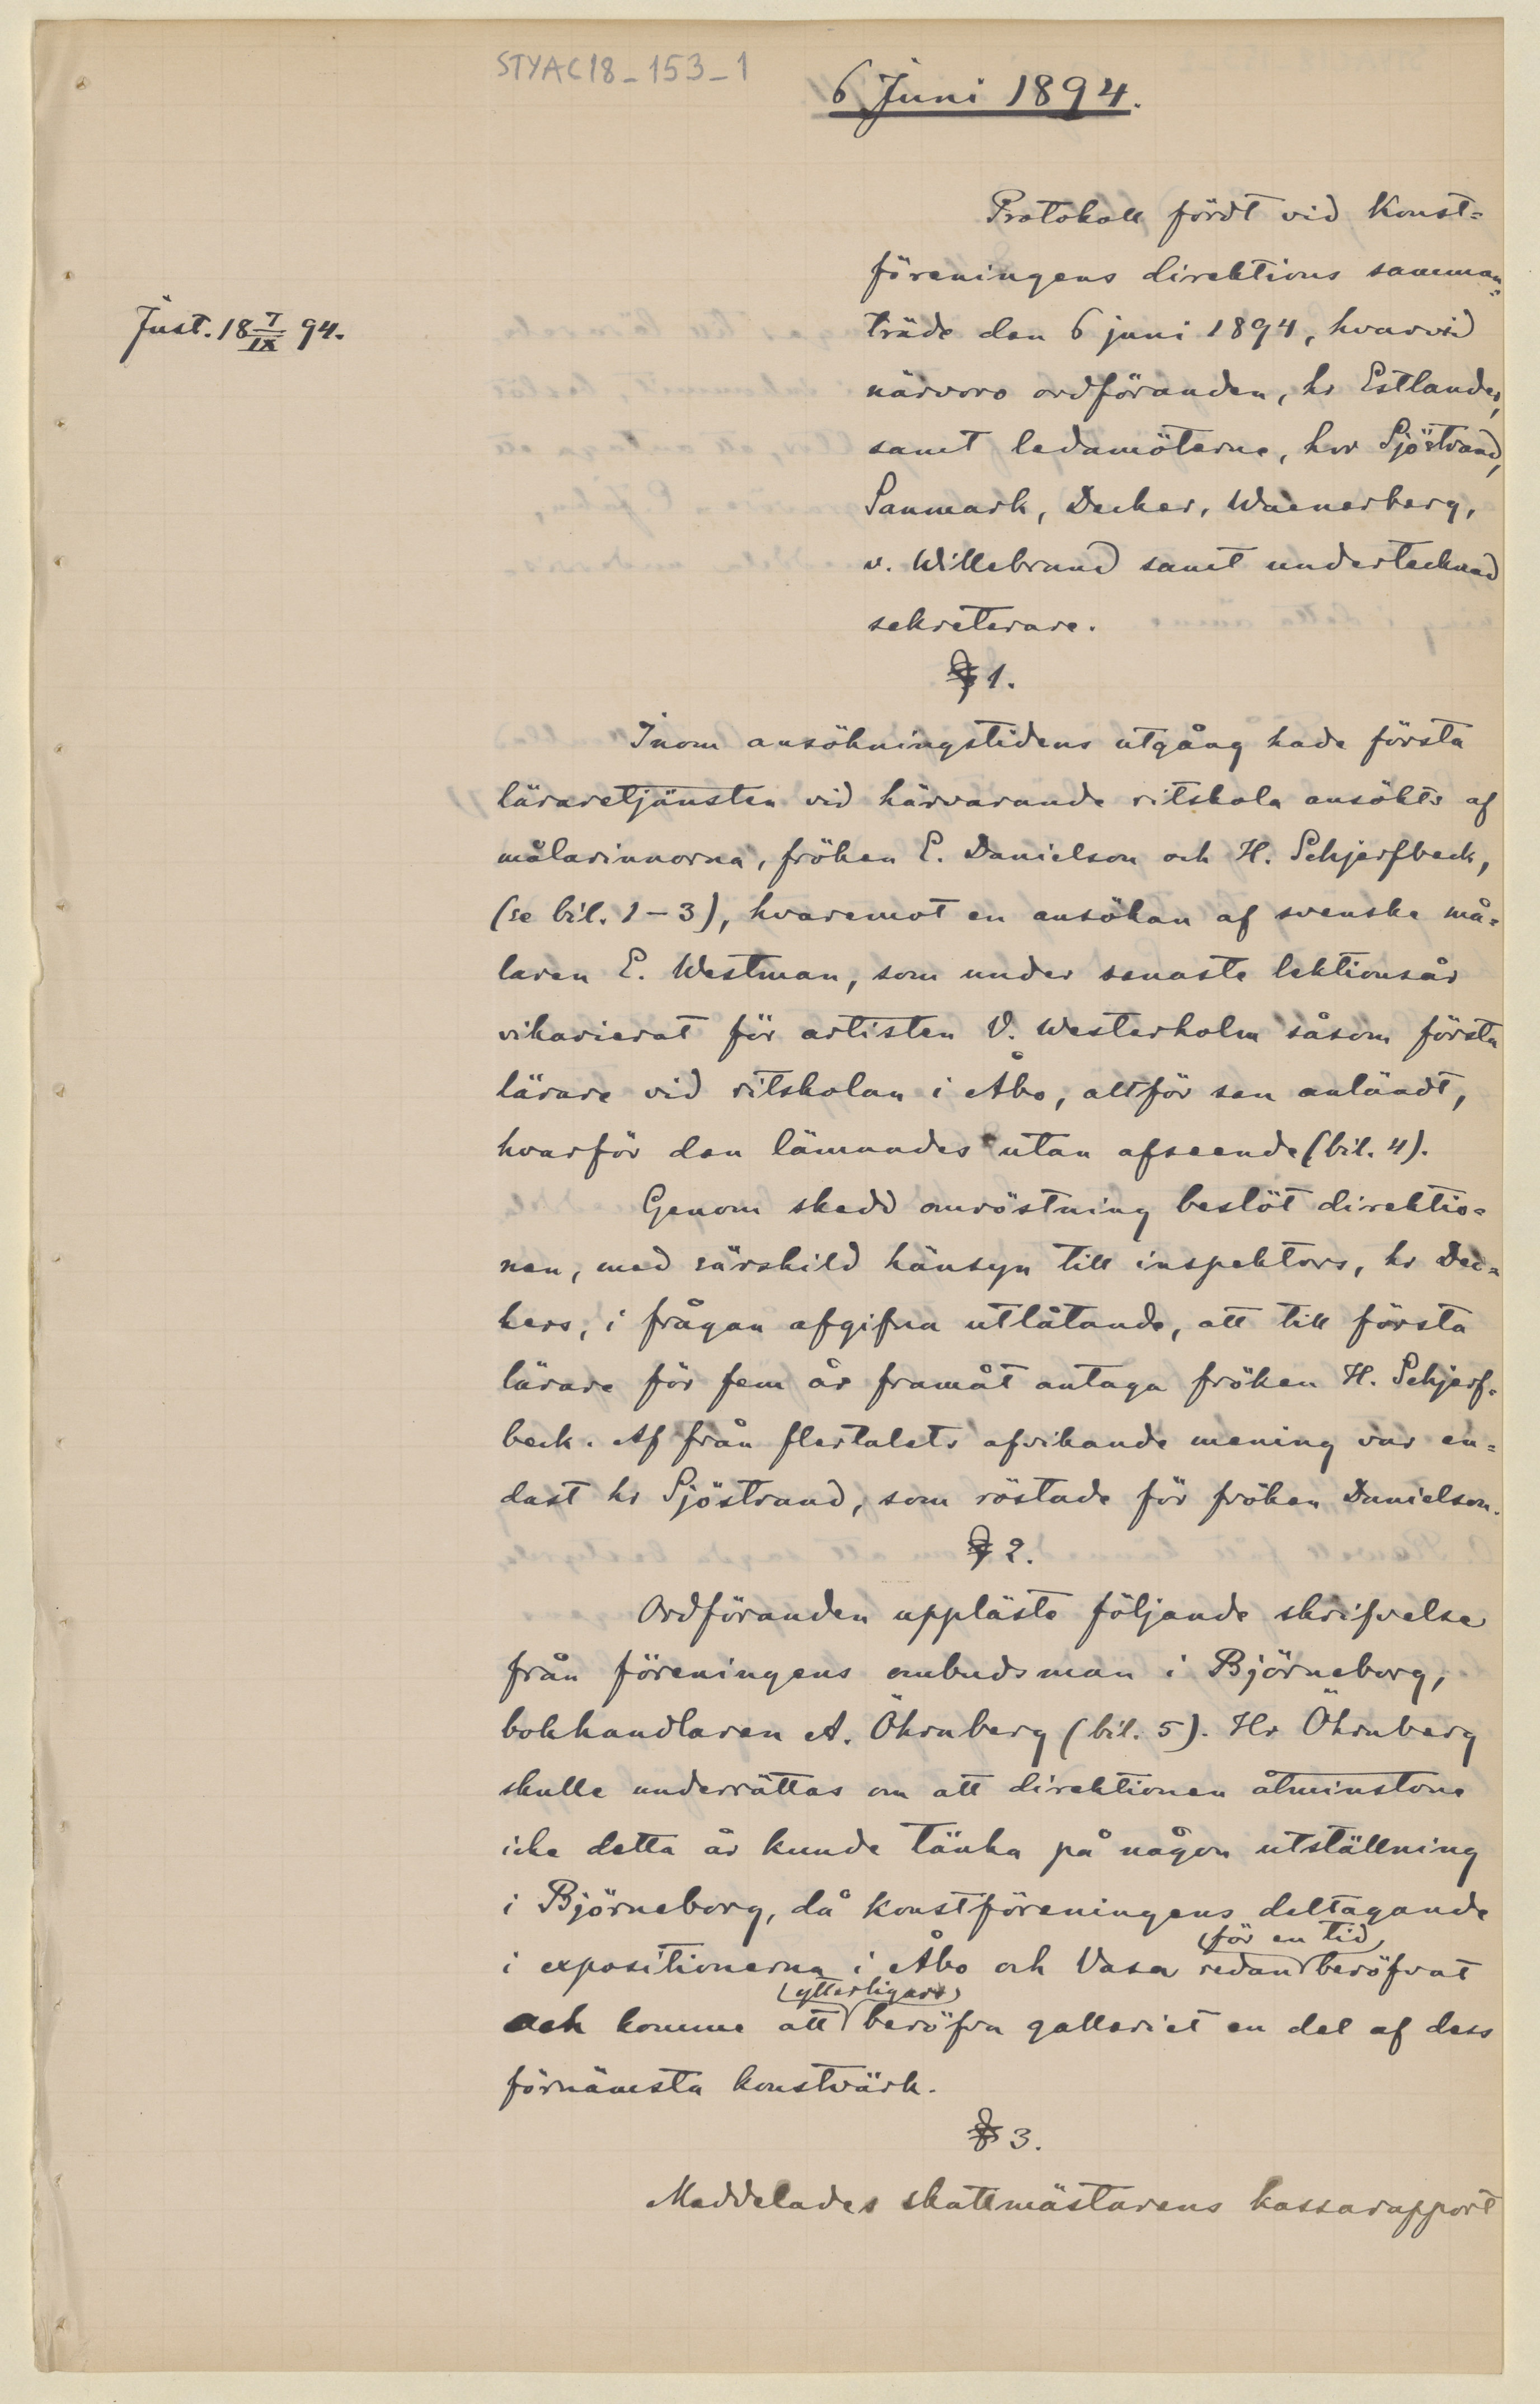 STYAC18_153_1
6 Juni 1894.
Protokoll fördt vid Konst=
föreningens direktions samman=
träde den 6 juni 1894, hvarvid
närvoro ordföranden, hr Estlander,
samt ledamöterne, hrr Sjöstrand,
Sanmark, Decker, Waenerberg,
v. Willebrand samt undertecknad
sekreterare.
Just. 18 7/IX 94.
§ 1.
Inom ansökningstidens utgång hade första
läraretjänsten vid härvarande ritskola ansökts af
målarinnorna, fröken E. Danielson och H. Schjerfbeck,
(se bil. 1-3), hvaremot en ansökan af svenske må=
laren E. Westman, som under senaste lektionsår
vikarierat för artisten V. Westerholm såsom första
lärare vid ritskolan i Åbo, alltför sen anländt,
hvarför den lämnades utan afseende (bil. 4).
Genom skedd omröstning beslöt direktio=
nen, med särskild hänsyn till inspektors, hr Dec=
kers, i frågan afgifna utlåtande, att till första
lärare för fem år framåt antaga fröken H. Schjerf=
beck. Af från flertalets afvikande mening var en=
dast hr Sjöstrand, som röstade för fröken Danielson.
§ 2.
Ordföranden uppläste följande skrifvelse
från föreningens ombudsman i Björneborg,
bokhandlaren A. Öhrnberg (bil. 5). Hr Öhrnberg
skulle underrättas om att direktionen åtminstone
icke detta år kunde tänka på någon utställning
i Björneborg, då konstföreningens deltagande
för en tid
i expositionerna i Åbo och Vasa redan beröfvat
ytterligare
och komme att beröfva galleriet en del af dess
förnämsta konstvärk.
§ 3.
Meddelades skattmästarens kassarapport